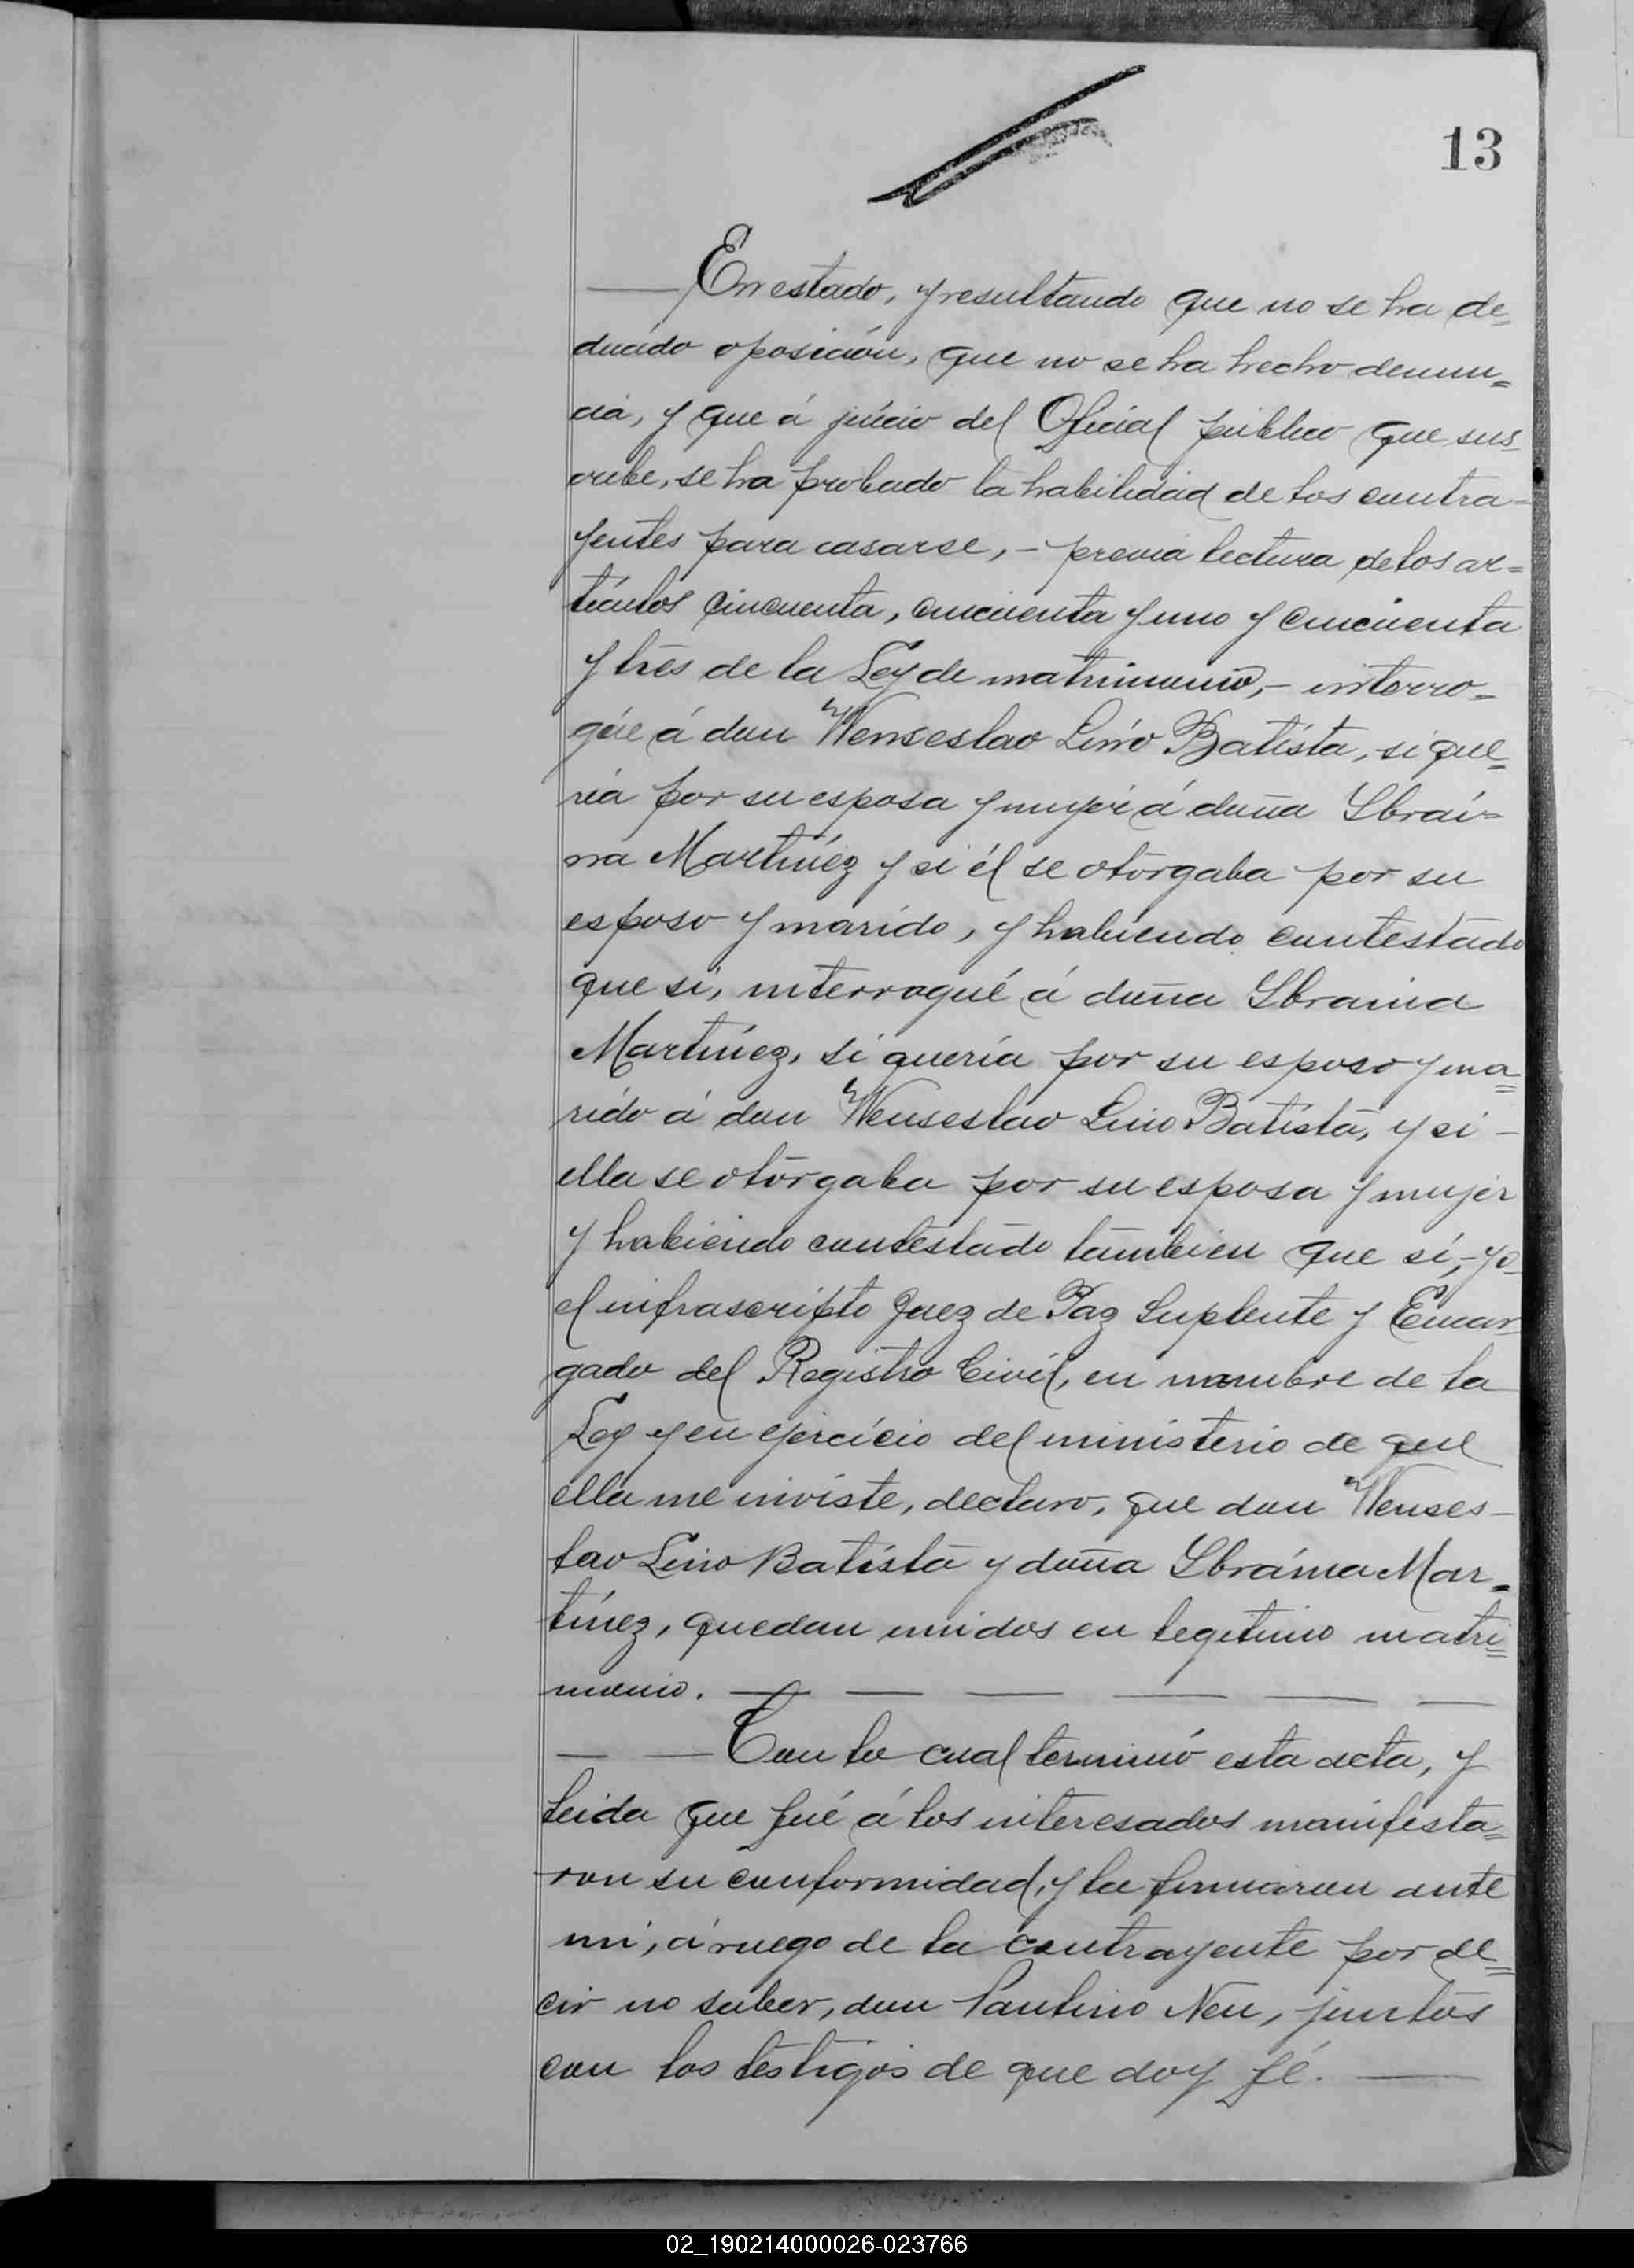 13
En estado, y resultando que no se ha de=
ducido oposición, que no se ha hecho denun=
cia, y que á juicio del Oficial público que sus
cribe, se ha probado la habilidad de los contra=
yentes para casarse, - previa lectura de los ar=
tículos cincuenta, cincuenta y uno y cincuenta
y tres de la Ley de matrimonio, - interro=
gué á don Wenseslao Lino Batista, si que=
ría por su esposa y mujer á doña Ibraí=
na Martínez y si él se otorgaba por su
esposo y marido, y habiendo contestado
que si, interrogué á doña Ibraina
Martínez, si quería por su esposo y ma=
rido á don Wenseslao Lino Batista, y si -
ella se otorgaba por su esposa y mujer
y habiendo contestado tambien que sí, - yo
el infrascripto Juez de Paz Suplente y Encar
gado del Registro Civil, en nombre de la
Ley y en ejercício del ministerio de que
ella me inviste, declaro, que don Wenses-
lao Lino Batista y doña Ibraína Mar=
tínez, quedan unidos en legitimo matri=
monio. — — — — — —
— — Con lo cual terminó esta acta, y
leida que fué á los interesados manifesta=
ron su conformidad, y la firmaron ante
mi, á ruego de la contrayente por de=
cir no saber, don Paulino Neu, juntos
con los testigos de que doy fé. —
02_190214000026-023766